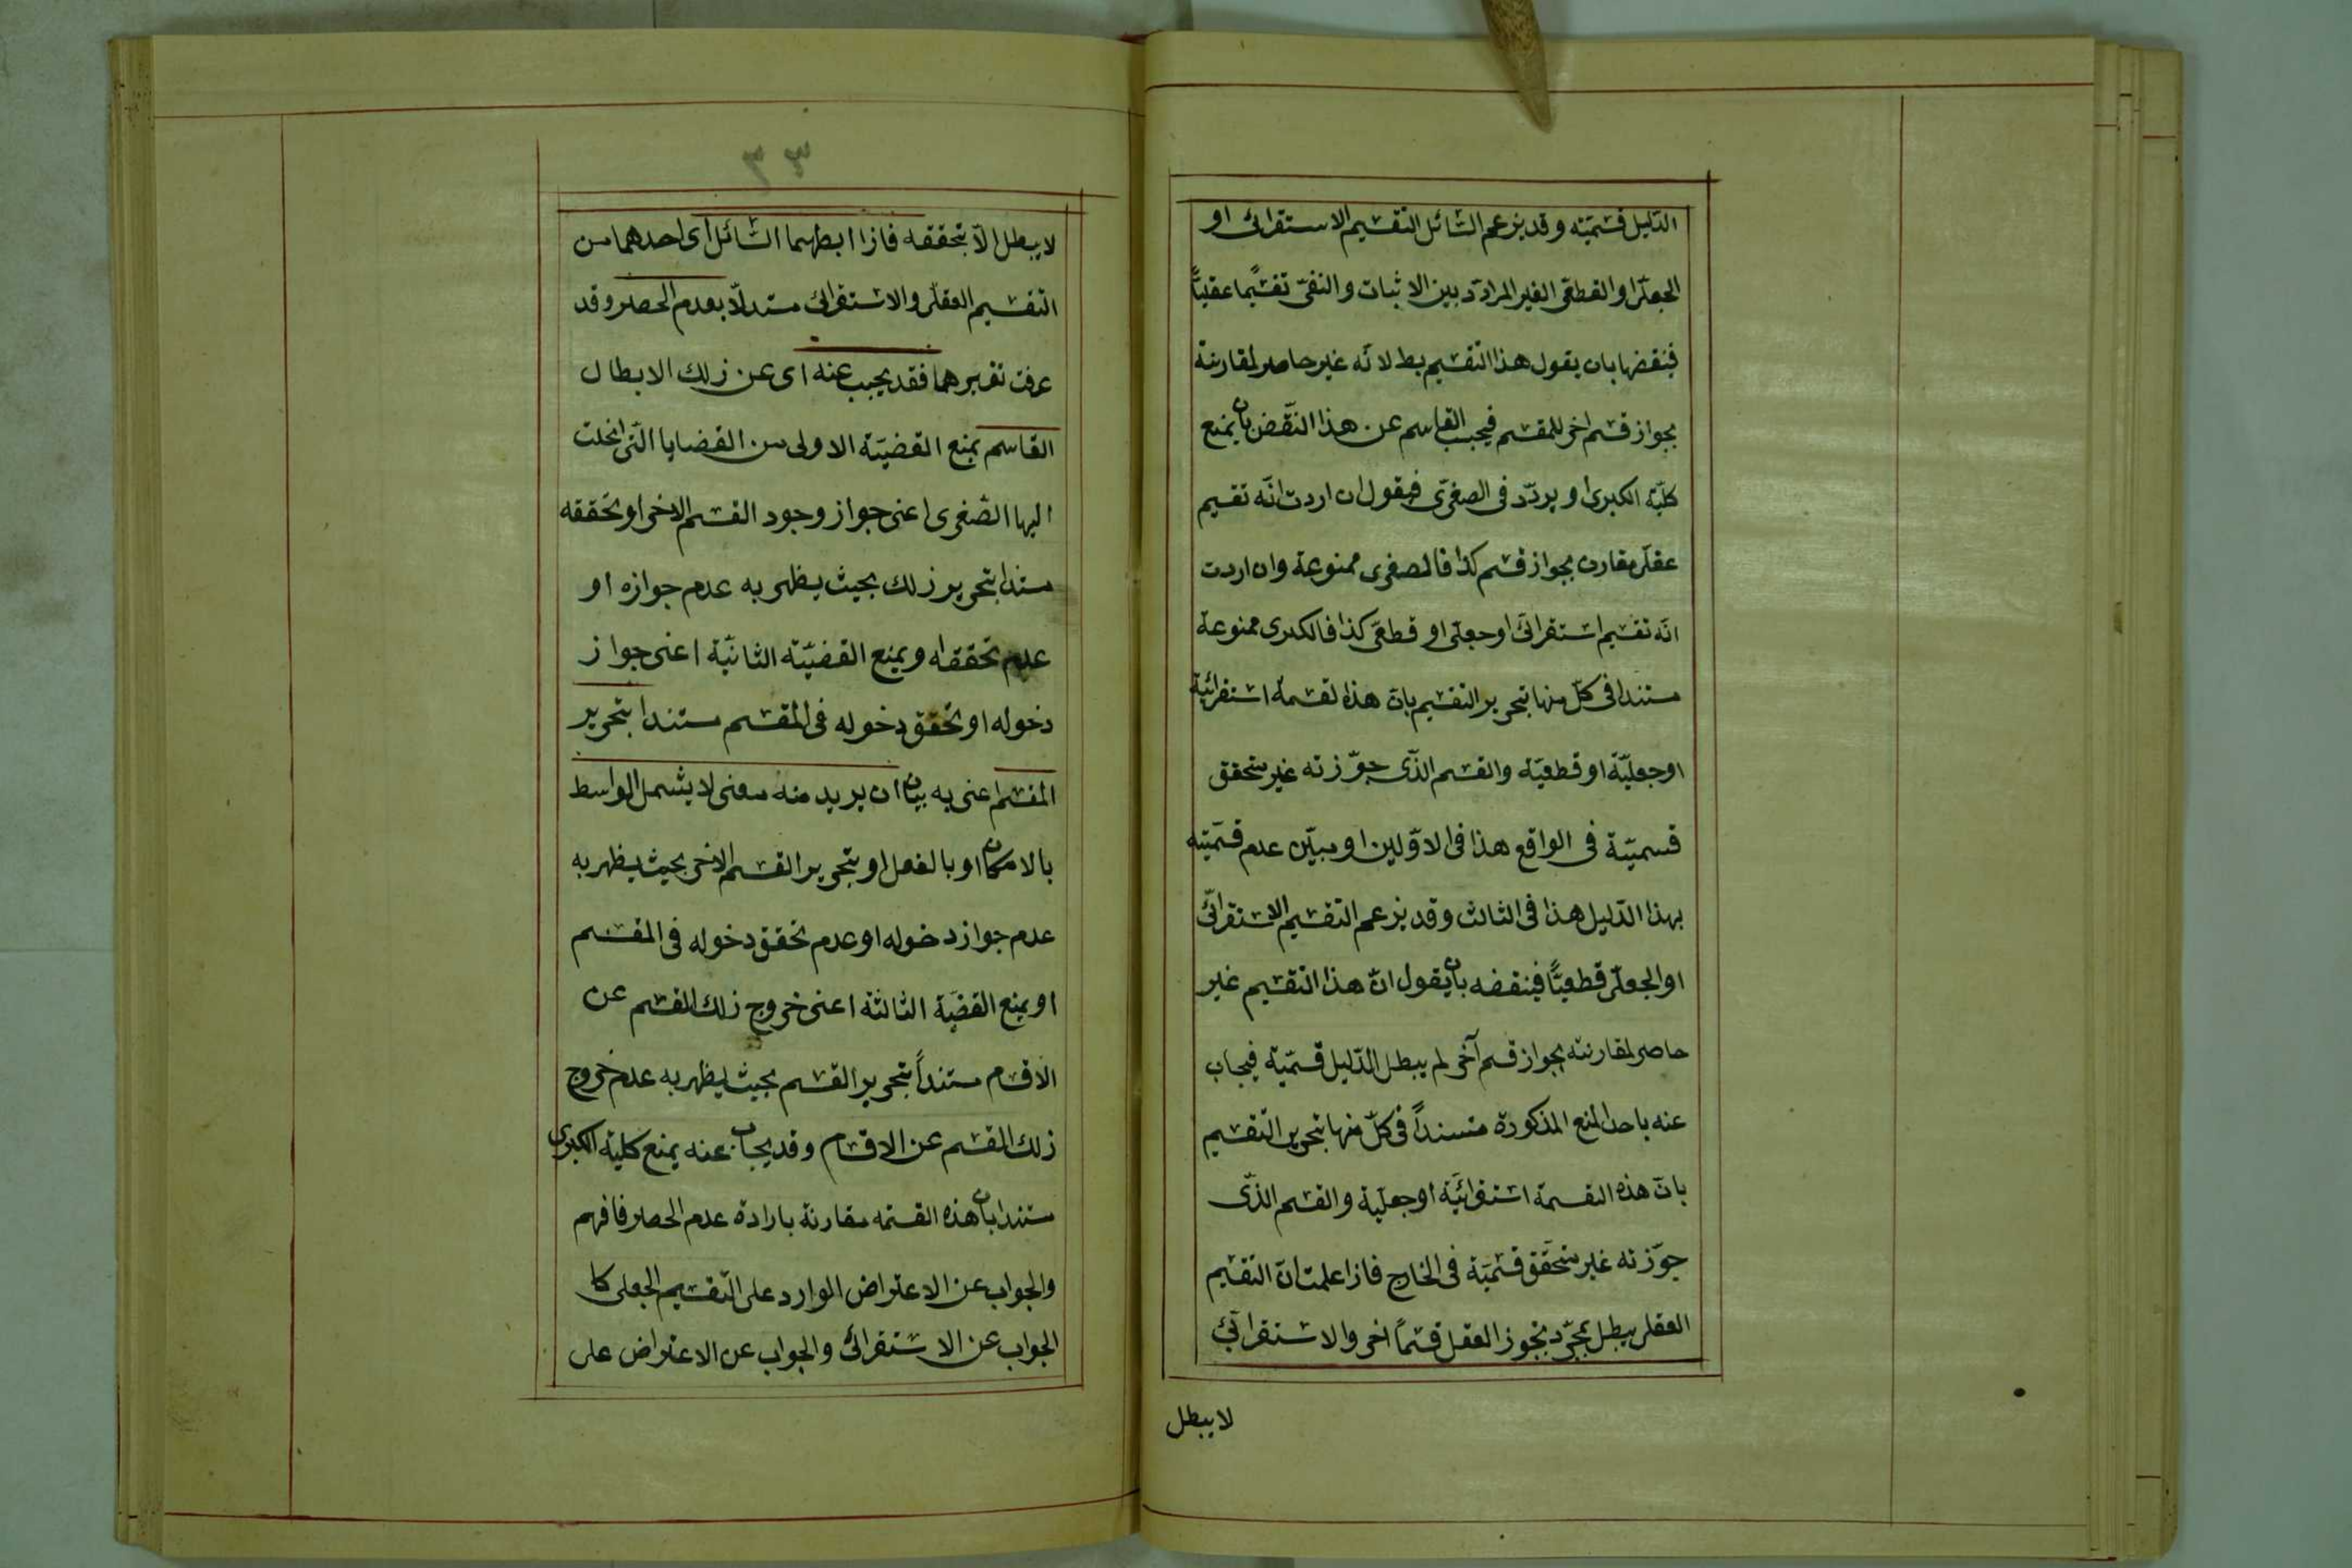 الدّليل قسميّته وقد يزعم السّائل التقسيم الاستقرائى او
الجعلىّ او القطعىّ الغير المرادّد بين الاثبات والنفىّ تقسيمًا عقليًّا
فينقضها بان يقول هذا التقسيم بط لانّه غير حاصر لمقارنته
بجواز قسم اخر للمقسم فيجيب القاسم عن هذا النّقض بان يمنع
كليّة الكبرى او يردّد فى الصغرىّ فيقول ان اردت انّه تقسيم
عقلىّ مقارن بجواز قسم كذا فالصغرى ممنوعة وان اردت
انّه تقسيم استقرائىّ او جعلى او قطعىّ كذا فالكبرى ممنوعة
مستندا فى كلّ منها بتحرير التقسيم بانّ هذه لقسمة استقرائيّة
او جعليّة او قطعيّة والقسم الذّى جوّزته غير متحقق
قسميّة فى الواقع هذا فى الاوّلين او مبيّن عدم قسميّته
بهذا الدّليل هذا فى الثالث وقد يزعم التقسيم الاستقرائىّ
او الجعلىّ قطعيًّا فينقضه بان يقول انّ هذا التقسيم غير
حاصر لمقارنته بجواز قسم آخر لم يبطل الدّليل قسميّة فيجاب
عنه باحد المنع المذكورة مستنداً فى كلّ منها بتحرير التقسيم
بانّ هذه القسمة استقرائيّة او جعليّة والقسم الذّى
جوّزته غير متحّقق قسميّة فى الخارج فاذا علمت انّ التقسيم
العقلى يبطل بمجرّد تجوز العقل قسماً اخر والاستقرائىّ
لا يبطل
٣٣
لا يبطل الاّ بتحققه فاذا ابطلهما السّائل اى احدهما من
التقسيم العقلىّ والاستقرائى مستدلاّ بعدم الحصر وقد
عرفت تقريرهما فقد يجيب عنه اى عن ذلك الابطال
القاسم بمنع القضيّة الاولى من القضايا الّتى انحلت
اليها الصّغرى اعنى جواز وجود القسم الاخر او تحققه
مستندا بتحرير ذلك بحيث يظهر به عدم جوازه او
عدم تحققه او بمنع القضيّة الثانيّة اعنى جواز
دخوله او تحقق دخوله فى المقسم مستندا بتحرير
المقسم اعنى به بيان ان يريد منه معنى لا يشمل الواسط
بالامكان او بالفعل او بتحرير القسم الاخر بحيث يظهر به
عدم جواز دخوله او عدم تحقق دخوله فى المقسم
او بمنع القضيّة الثالثة اعنى خروج ذلك القسم عن
الاقسام مستنداً بتحرير القسم بحيث يظهر به عدم خروج
ذلك المقسم عن الاقسام وقد يجاب عنه يمنع كليّة الكبرى
مستندا بان هذه القسمه مقارنة بارادة عدم الحصر فافهم
والجواب عن الاعتراض الوارد على التّقسيم الجعلى كا
الجواب عن الاستقرائى والجواب عن الاعتراض على